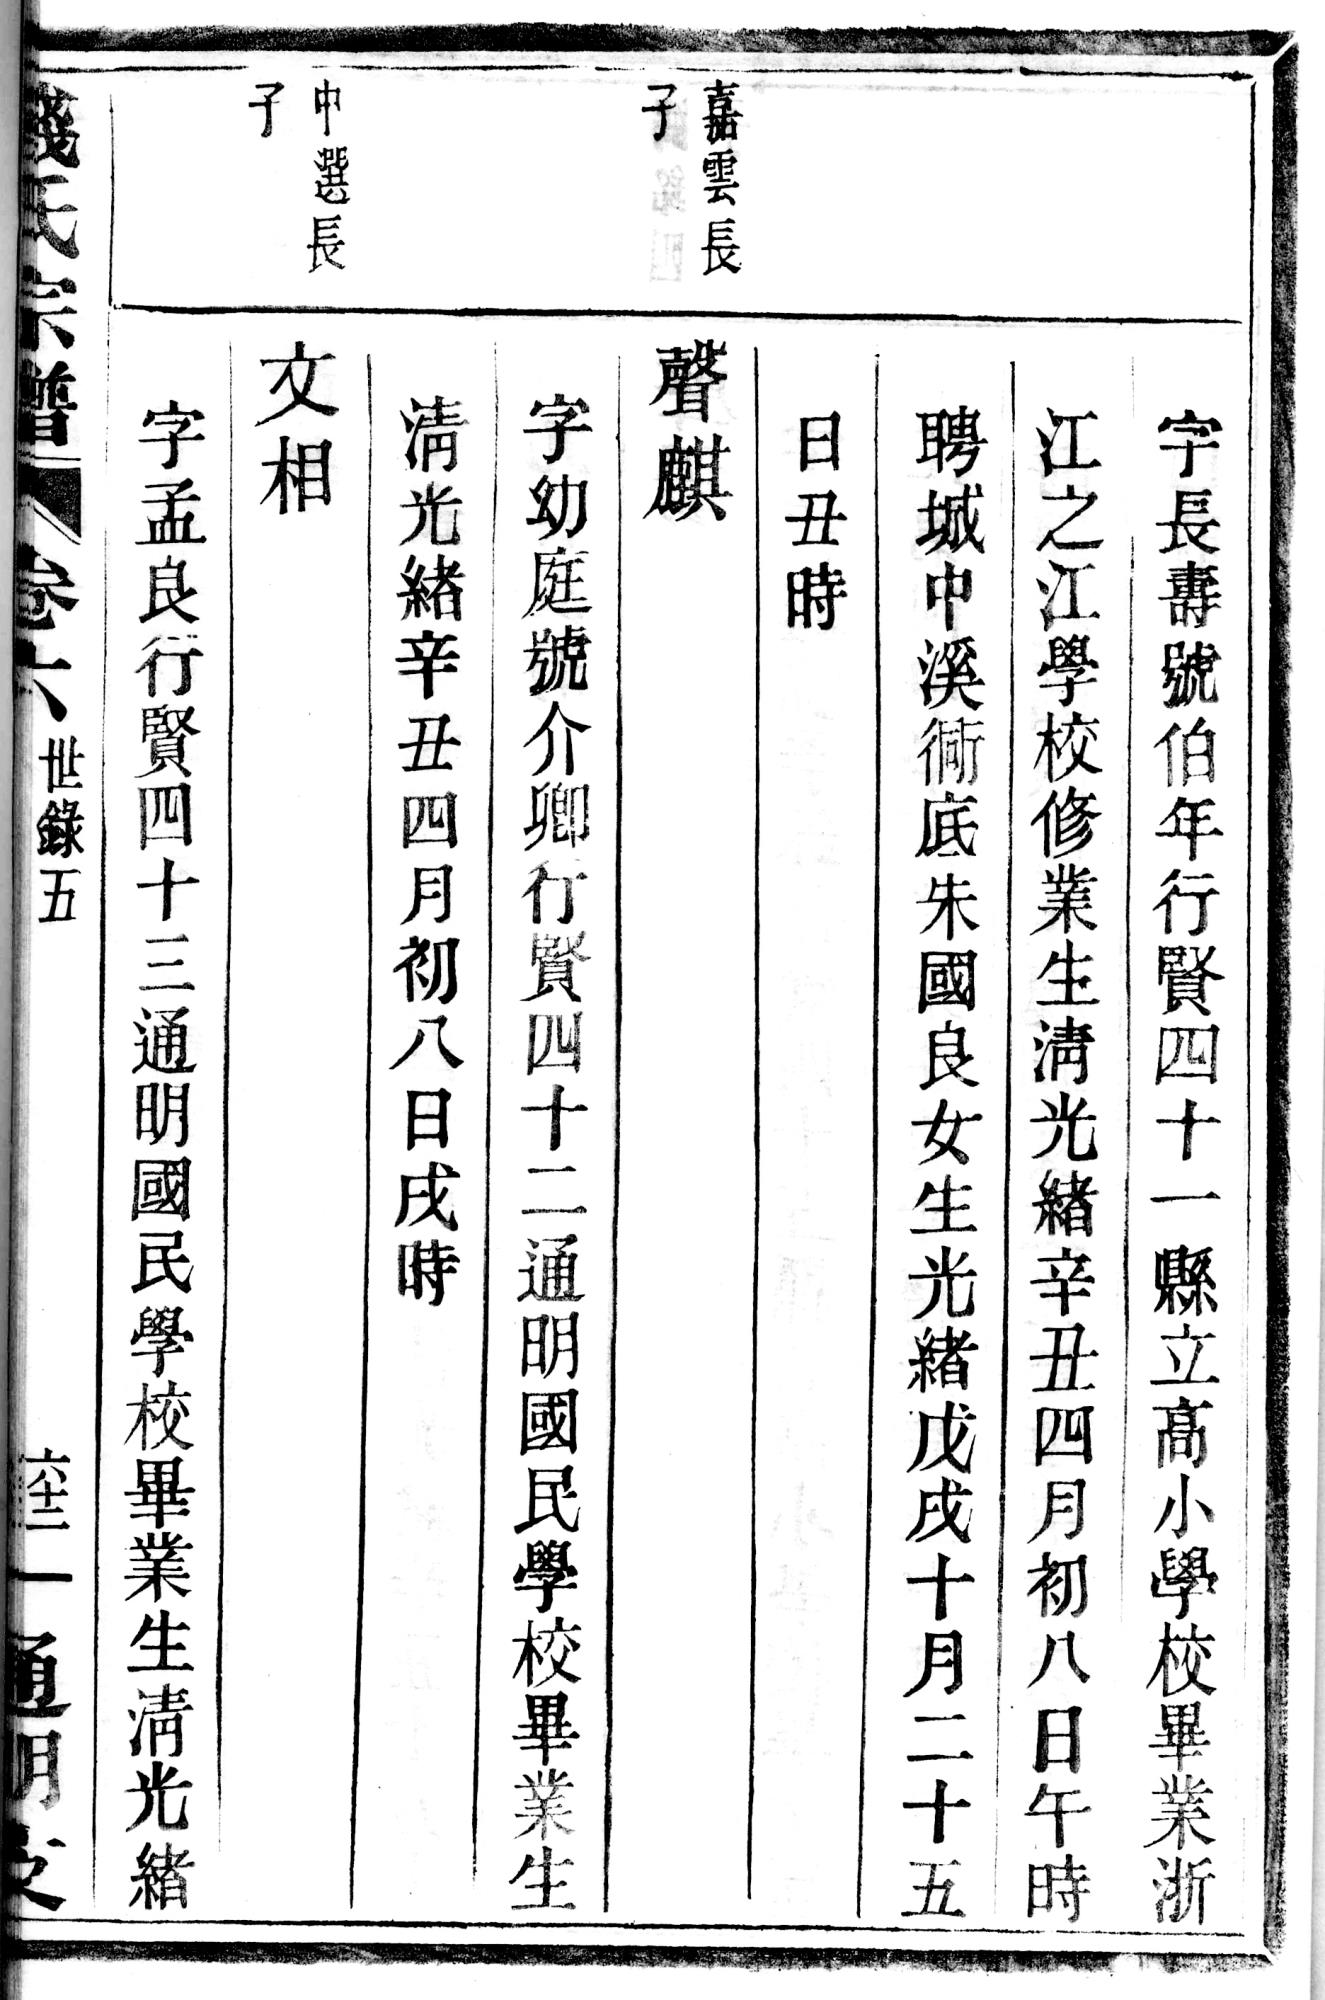 字長壽號伯年行賢四十一縣立高小學校畢業浙
江之江學校修業生清光緒辛丑四月初八日午時
聘城中溪衕底朱國良女生光緒戊戌十月二十五
日丑時
嘉雲長
子
聲麒
字幼庭號介卿行賢四十二通明國民學校畢業生
清光緒辛丑四月初八日戌時
中選長
子
文相
字孟良行賢四十三通明國民學校畢業生清光緒
錢氏宗譜 卷六 世錄五 六十二 通明支